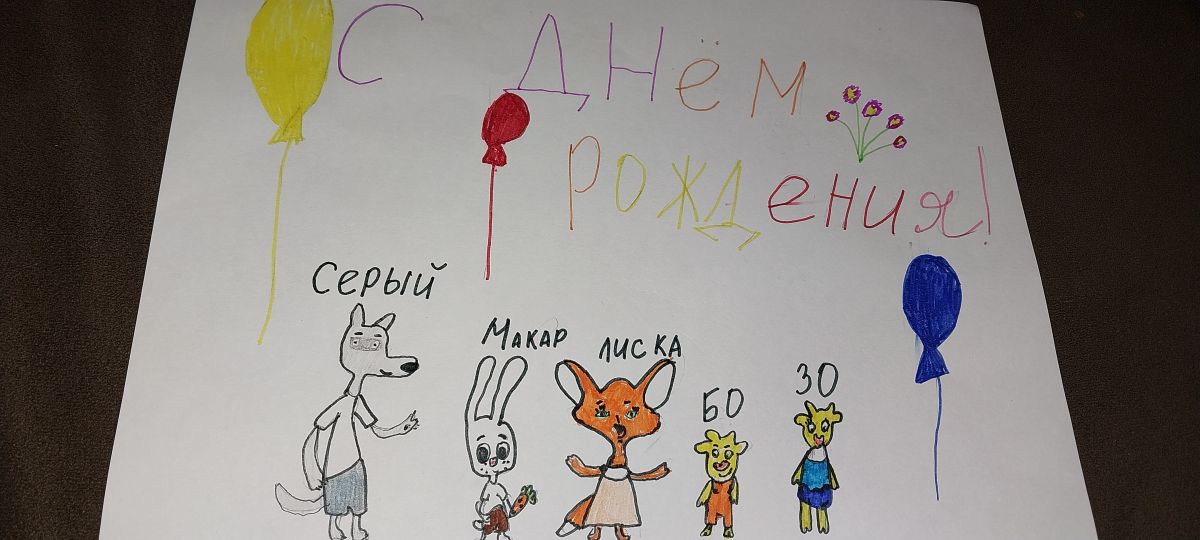 С ДНём
рождения!
Серый
Макар
лиска
БО
ЗО